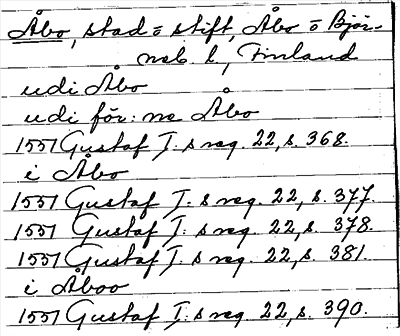 Åbo, stad o stift, Åbo o Björ-
neb. l, Finland
udi Åbo
udi för: ne Åbo
1551 Gustaf I: s reg. 22, s. 368.
i Åbo
1551 Gustaf I: s reg. 22, s. 377.
1551 Gustaf I: s reg. 22, s. 378.
1551 Gustaf I: s reg. 22, s. 381.
i Åboo
1551 Gustaf I: s reg. 22, s. 390.